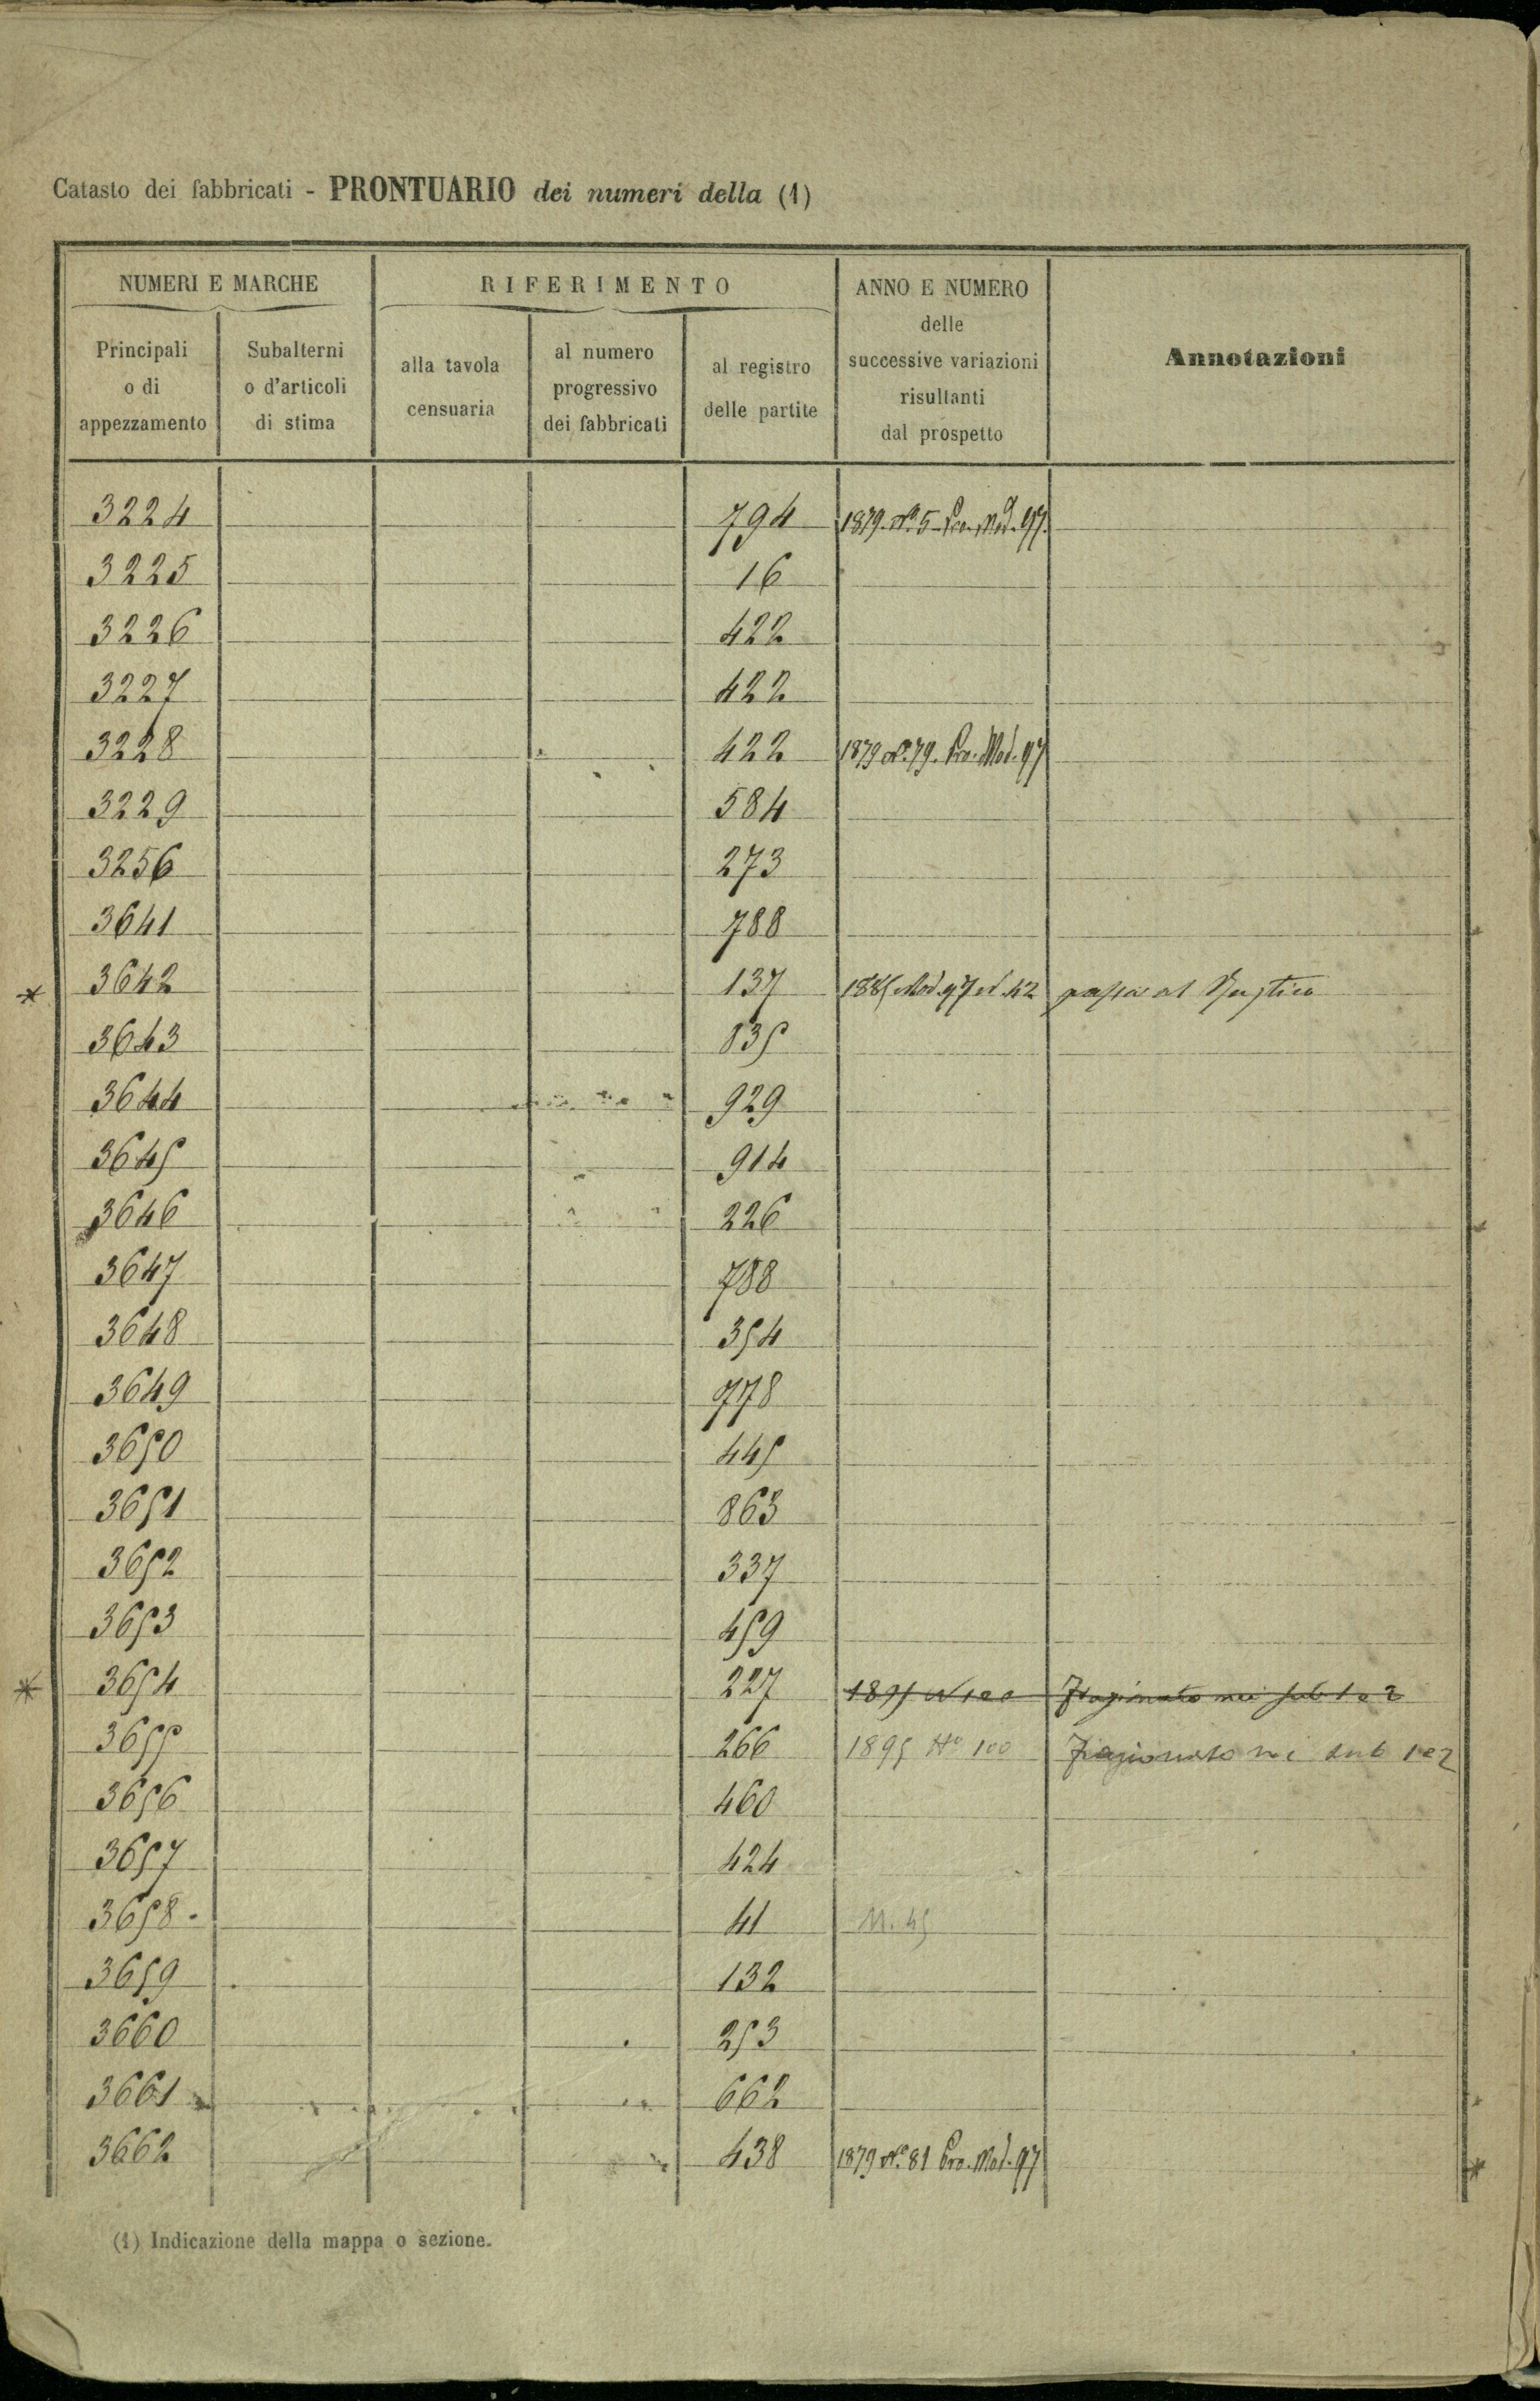 Catasto dei fabbricati - PRONTUARIO dei numeri della (1)
NUMERI E MARCHE
RIFERIMENTO
ANNO E NUMERO
delle
successive variazioni
risultanti
dal prospetto
Annotazioni
Principali
o di
appezzamento
Subalterni
o d'articoli
di stima
alla tavola
censuaria
al numero
progressivo
dei fabbricati
al registro
delle partite
3224 794 1879. N.° 5 - Pro. Mod. 97.
3225 16
3226 422
3227 422
3228 422 1879 N.° 79. Pro. Mod. 97
3229 584
3256 273
3641 788
* 3642 137 1885 Mod. 97 N. 42 passa al Rustico
3643 835
3644 929
3645 914
3646 226
3647 788
3648 354
3649 778
3650 445
3651 863
3652 337
3653 459
* 3654 227 1895 N 100 Frazionato nei sub 1 e 2
3655 266 1895 N° 100 Frazionato nei sub 1 e 2
3656 460
3657 424
3658. 41 M. 45
3659 132
3660 253
3661 662
3662 438 1879 N.° 81 Pro. Mod. 97 *
(1) Indicazione della mappa o sezione.